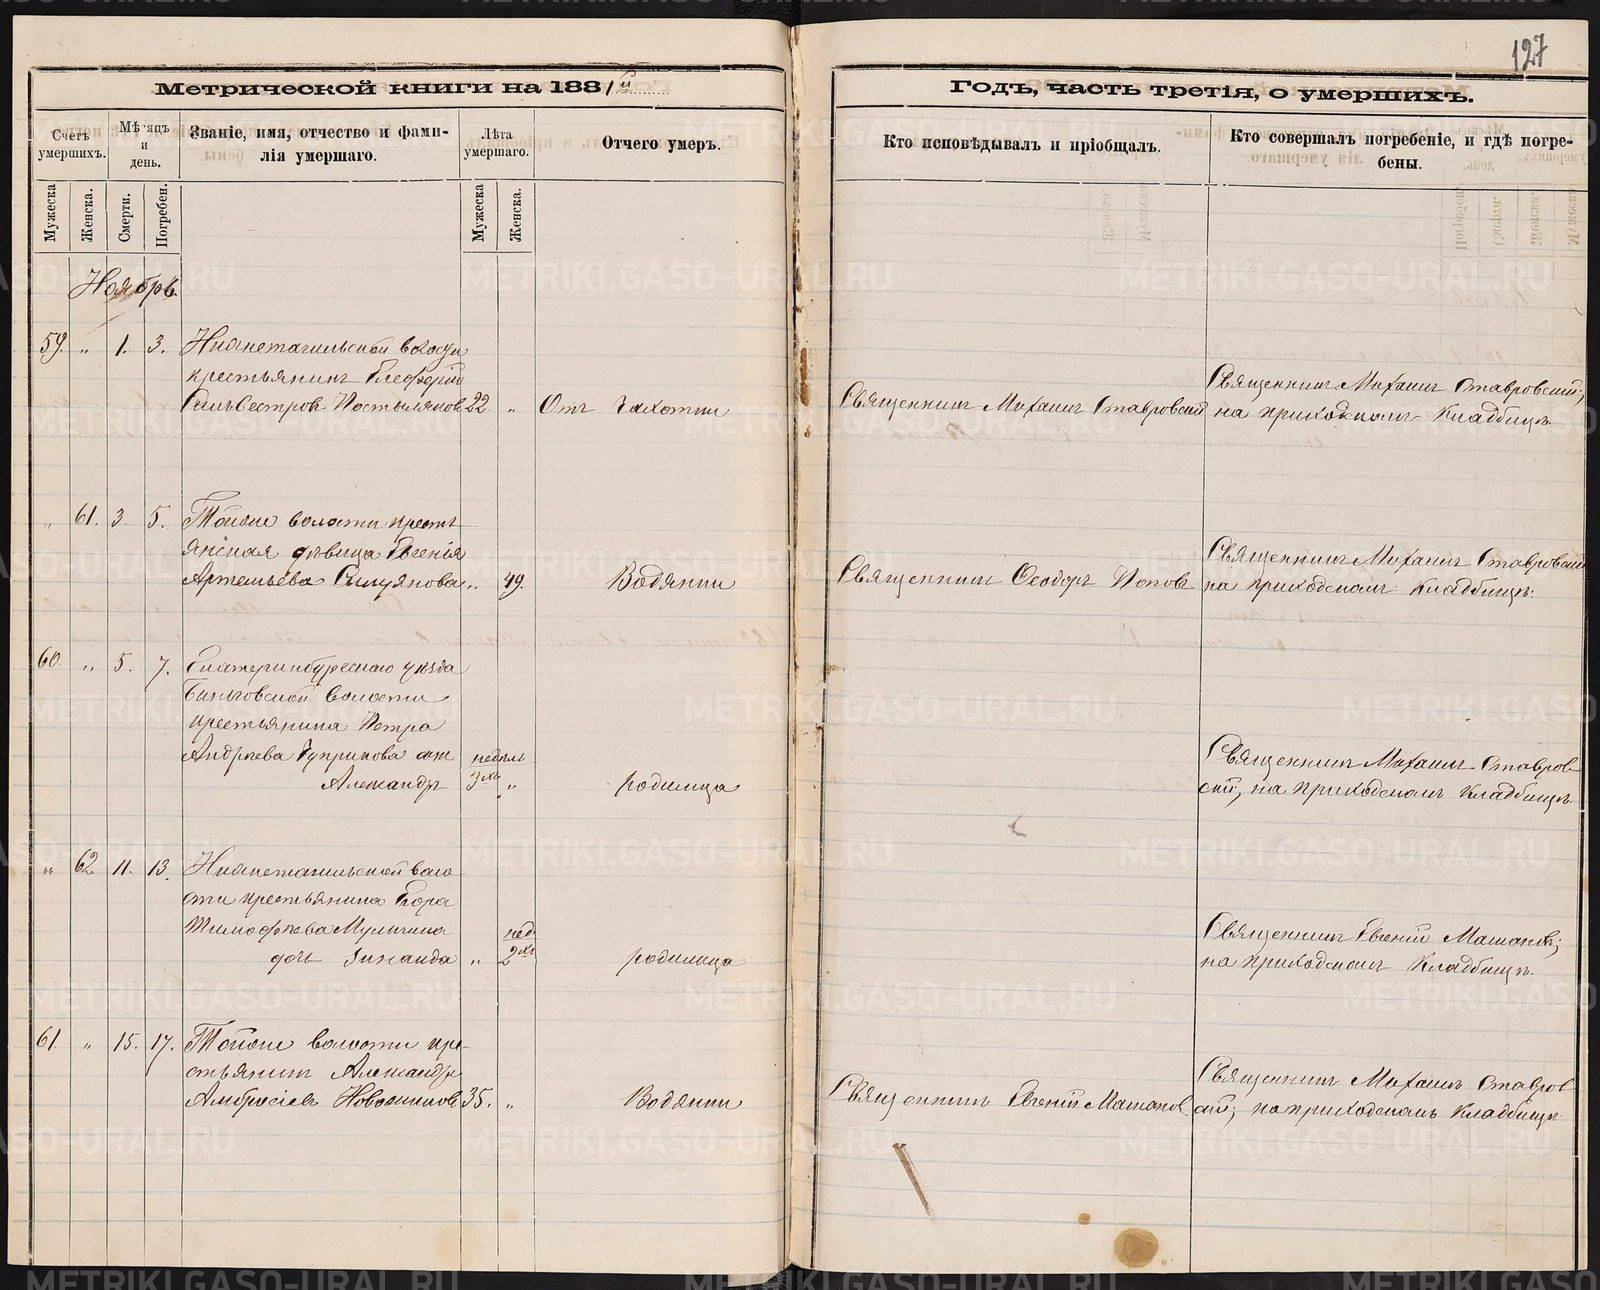 127
Метрической книги на 1881й
Годъ, часть третія, о умершихъ.
Счетъ умершихъ.
Мѣсяцъ и день.
Званіе, имя, отчество и фами-
лія умершаго.
Лѣта умершаго.
Отчего умеръ.
Кто исповѣдывалъ и пріобщалъ.
Кто совершалъ погребеніе, и гдѣ погре-
бены.
Мужеска
Женска.
Смерти.
Погребен.
Мужеска
Женска.
Ноябрь.
59. " 1. 3. Нижнетагильской волости
крестьянинъ Елевферій
Сильвестровъ Постыляковъ 22. " Отъ чахотки
Священникъ Михаилъ Ставровскій
Священникъ Михаилъ Ставровскій;
на приходскомъ кладбищѣ.
" 61. 3. 5. Тойже волости кресть
янская дѣвица Евгенія
Артемьева " 49. Водянки
Священникъ Ѳеодоръ Поповъ
Священникъ Михаилъ Ставровскій
на приходскомъ кладбищѣ.
60. " 5. 7. Екатеринбургскаго уѣзда
Быньговской волости
крестьянина Петра
Андреева Чуприкова сынъ
Александръ
недѣль
3хъ "
родимца
Священникъ Михаилъ Ставров
скій, на приходскомъ кладбищѣ.
" 62. 11. 13. Нижнетагильской воло
сти крестьянина Егора
Тимофеева Мулыгина
дочь Зинаида "
нед.
2хъ
родимца
Священникъ Евгеній
на приходскомъ кладбищѣ.
61. " 15. 17. Тойже волости кре-
стьянинъ Александръ
Амбросіевъ Новошиновъ 35. " Водянки
Священникъ Евгеній
Священникъ Михаилъ Ставров
скій; на приходскомъ кладбищѣ
METRIKI.GASO-URAL.RU